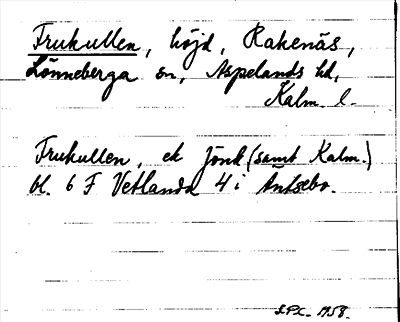 Frukullen, höjd, Rakenäs,
Lönneberga sn, Aspelands hd,
Kalm. l.
Frukullen, ek Jönk (samt Kalm.)
bl. 6 F Vetlanda 4 i Äntsebo.
1958.